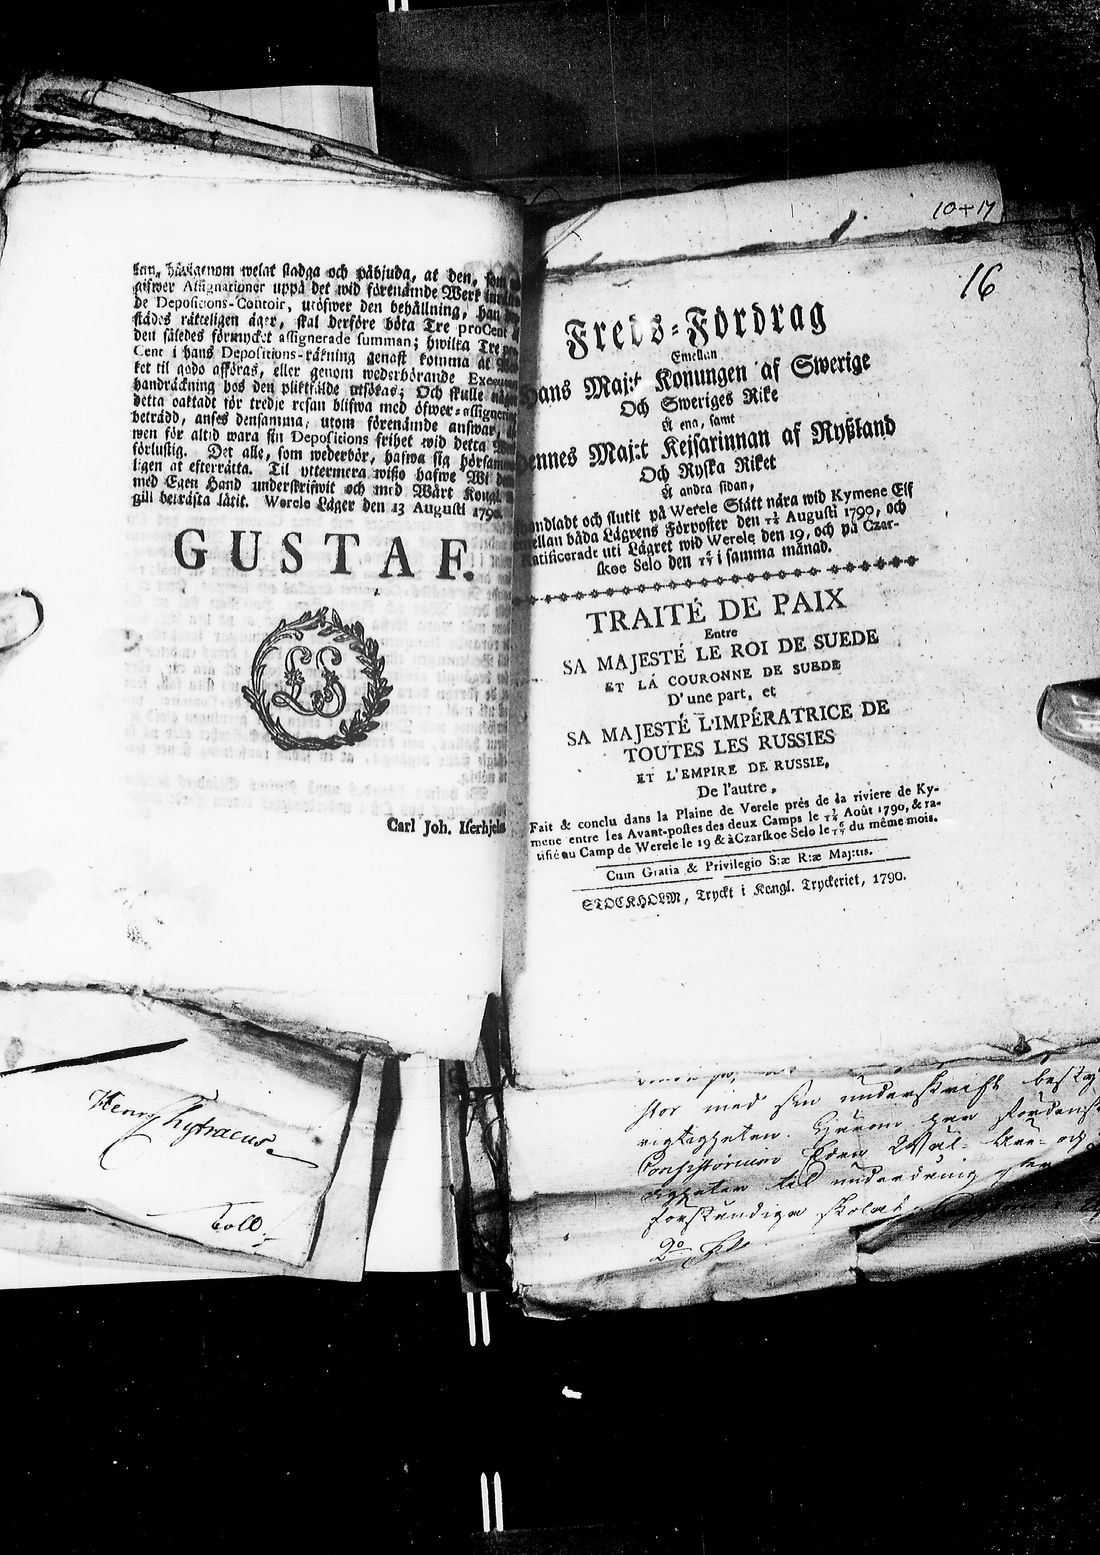 welat stadga och påbjuda, at den, som
gifwer Assignationer uppå det wid förenämde Werk
de Depositions-Contoir, utöfwer den behållning, han
städes rätteligen äger, skal derföre böta Tre proCent
den således förmycket assignerade summan; hwilka Tre
Cent i hans Depositions-räkning genast komma at
ket til godo afföras, eller genom wederbörande
handräckning hos den pliktfälde utsökas; Och skulle
detta oaktadt för tredje resan blifwa med öfwer-assignering
beträdd, anses densamma, utom förenämde answar,
wen för altid wara sin Depositions frihet wid detta
förlustig. Det alle, som wederbör, hafwa sig hörsamme-
ligen at efterrätta. Til yttermera wisso hafwe Wi
med Egen Hand underskrifwit och med Wårt Kongl.
gill bekräfta låtit. Werele Läger den 13 Augusti 1790.
GUSTAF.
LS
Carl Joh. Iserhjelm
Henry Kytraeus
Coll.
10+17
16
Freds-Fördrag
Emellan
Hans Maj:t Konungen af Swerige
Och Sweriges Rike
Å ena, samt
Hennes Maj:t Kejsarinnan af Ryßland
Och Ryska Riket
Å andra sidan,
handladt och slutit på Werele Slätt nära wid Kymene Elf
emellan båda Lägrens Förposter den 3/14 Augusti 1790, och
Ratificeradt uti Lägret wid Werele den 19, och på Czar-
skoe Selo den 6/17 i samma månad.
TRAITÉ DE PAIX
Entre
SA MAJESTÉ LE ROI DE SUEDE
ET LA COURONNE DE SUEDE
D'une part, et
SA MAJESTÉ L'IMPÉRATRICE DE
TOUTES LES RUSSIES
ET L'EMPIRE DE RUSSIE,
De l'autre,
Fait & conclu dans la Plaine de Verele près de la riviere de Ky-
mene entre les Avant-postes des deux Camps le 3/14 Août 1790, & ra-
tifié au Camp de Werele le 19 & à Czarskoe Selo le 6/17 du même mois.
Cum Gratia & Privilegio S:æ R:æ Maj:tis.
STOCKHOLM, Tryckt i Kongl. Tryckeriet, 1790.
med sin underskrift
rigtigheten.
Consistorium
til
2o